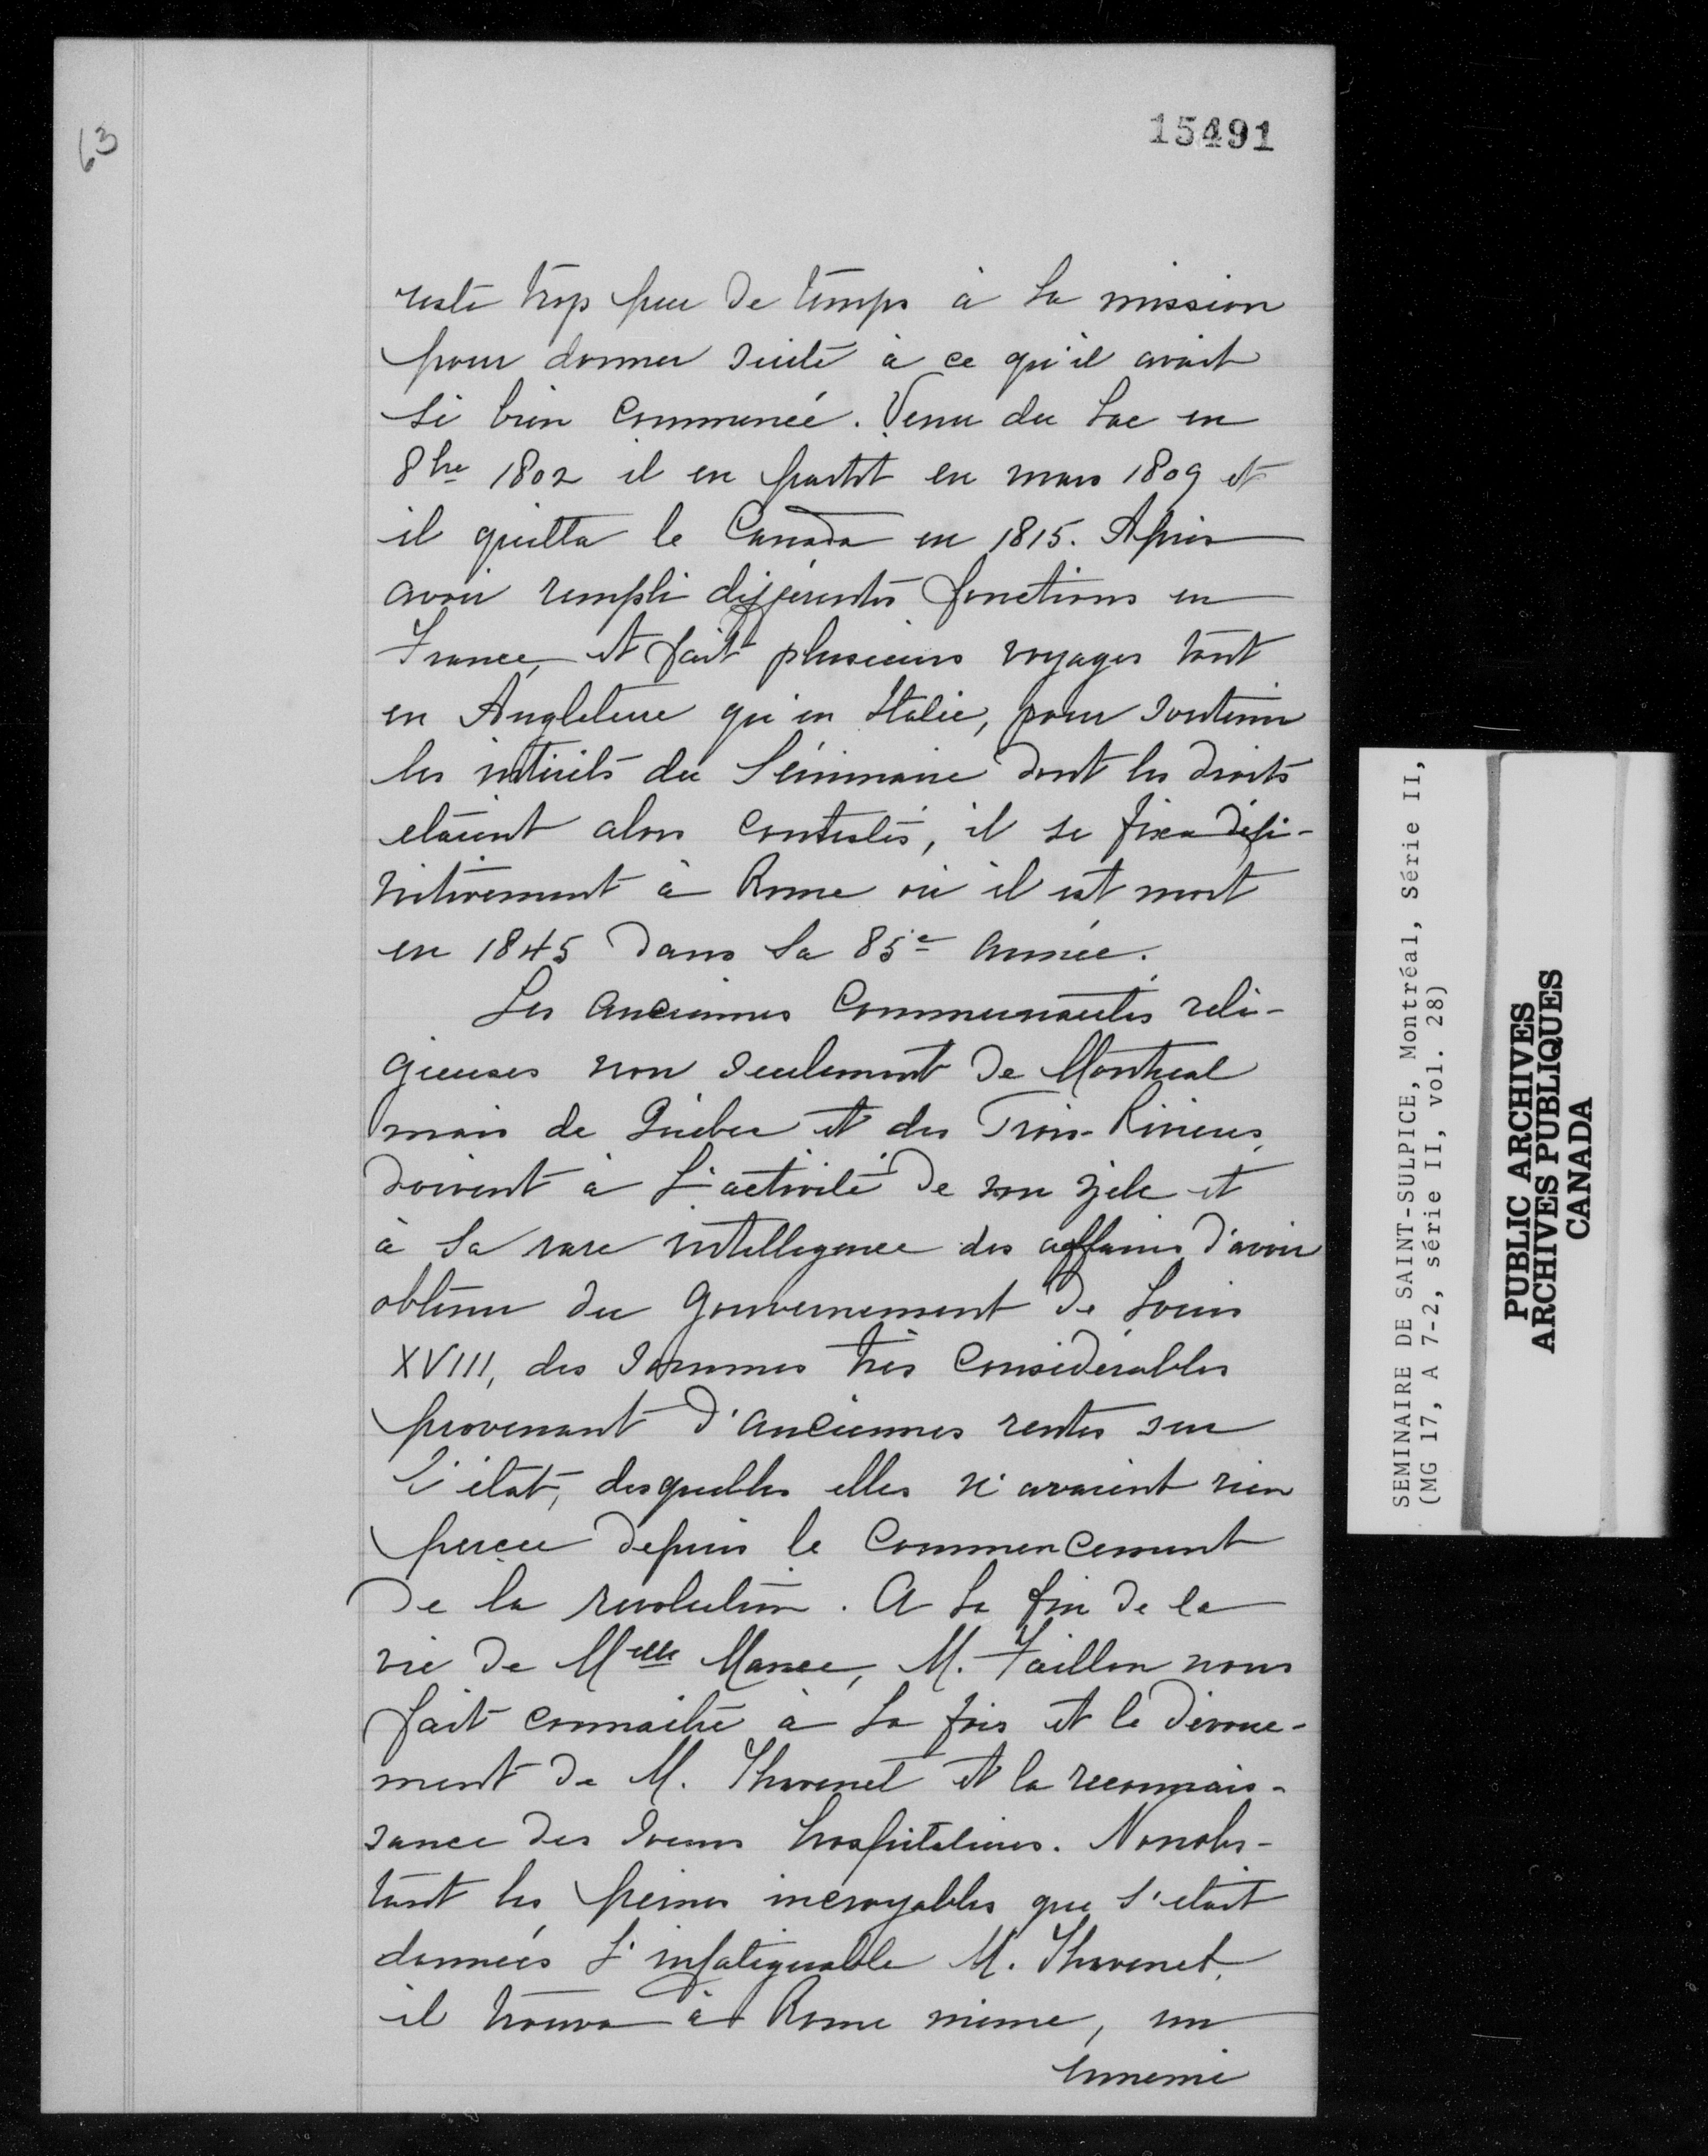 63
15491
reste trop peu de temps à la mission
pour donner suite à ce qu'il avait
si bien commencé. Venu du Lac en
8bre 1802 il en partit en mars 1809 et
il quitta le Canada en 1815. Après
avoir rempli différentes fonctions en
France, et fait plusieurs voyages tant
en Angleterre qu'en Italie, pour soutenir
les intérêts du Séminaire dont les droits
etaient alors contestés, il se fixa défi-
nitivement à Rome où il est mort
en 1845 dans sa 85e année.
Les anciennes Communautés reli-
gieuses non seulement de Montreal
mais de Québec et des Trois-Rivieres,
doivent à l'activité de son zèle et
à sa rare intelligence des affaires d'avoir
obtenu du Gouvernement de Louis
XVIII, des sommes très considérables
provenant d'anciennes rentes sur
l'état, desquelles elles n'avaient rien
perçu depuis le commencement
de la revolution. A la fin de la
vie de Melle Mance, M. Faillon nous
fait connaitre à la fois et le dévoue-
ment de M. Thavenet et la reconnais-
sance des soeurs hospitalières. Nonobs-
tant les peines incroyables que s'etait
données l'infatiguable M. Thavenet,
il trouva à Rome même, un
ennemi
SEMINAIRE DE SAINT-SULPICE, Montréal, Série II,
(MG 17, A 7-2, série II, vol. 28)
PUBLIC ARCHIVES
ARCHIVES PUBLIQUES
CANADA